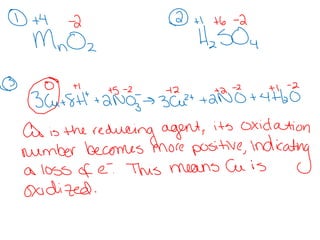 ① +4 -2 ② +1 +6 -2
MnO₂ H₂SO₄
③ 0 +1 +5 -2 +2 +2 -2 +1 -2
3Cu + 8H⁺ + 2NO₃⁻ → 3Cu²⁺ + 2NO + 4H₂O
Cu is the reducing agent, its oxidation
number becomes more positive, indicating
a loss of e⁻. This means Cu is
oxidized.